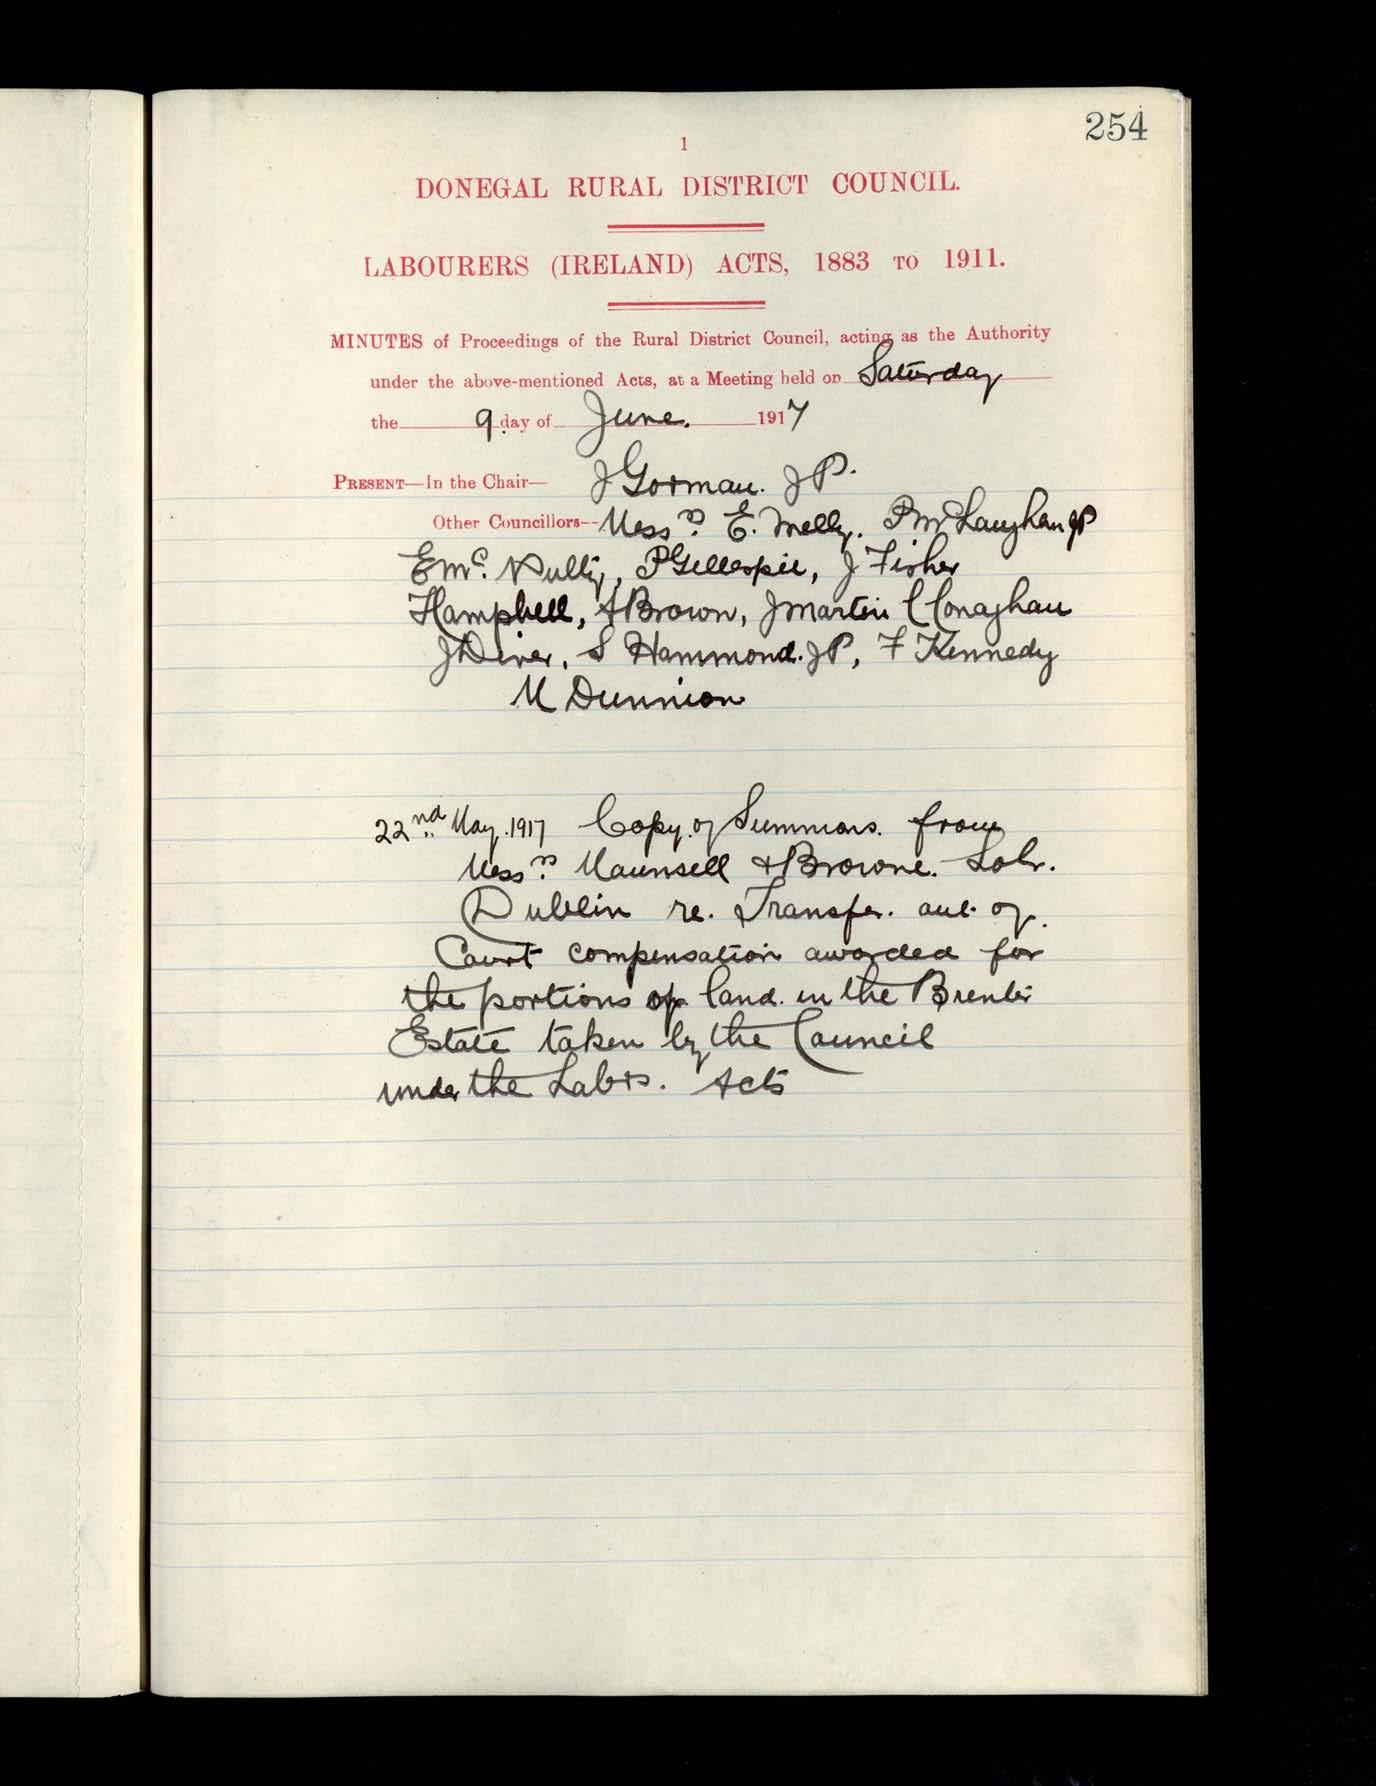 254
1
DONEGAL RURAL DISTRICT COUNCIL.
LABOURERS (IRELAND) ACTS, 1883 TO 1911.
MINUTES of Proceedings of the Rural District Council, acting as the Authority
under the above-mentioned Acts, at a Meeting held on Saturday
the 9 day of June. 1917
PRESENT—In the Chair— J Gorman. JP.
Other Councillors— Messrs. E. Melly. P McLaughlan JP
E Mc. Nulty, P Gillespie, J Fisher
A Brown, J Martin C Conaghan
J Diver, S Hammond. JP, F Kennedy
M Dunnion
22nd. May. 1917 Copy of Summons. from
Messrs. Maunsell & Browne. Solr.
Dublin re. Transfer. out of
Court compensation awarded for
the portions of land in the
Estate taken by the Council
under the Labrs. Acts